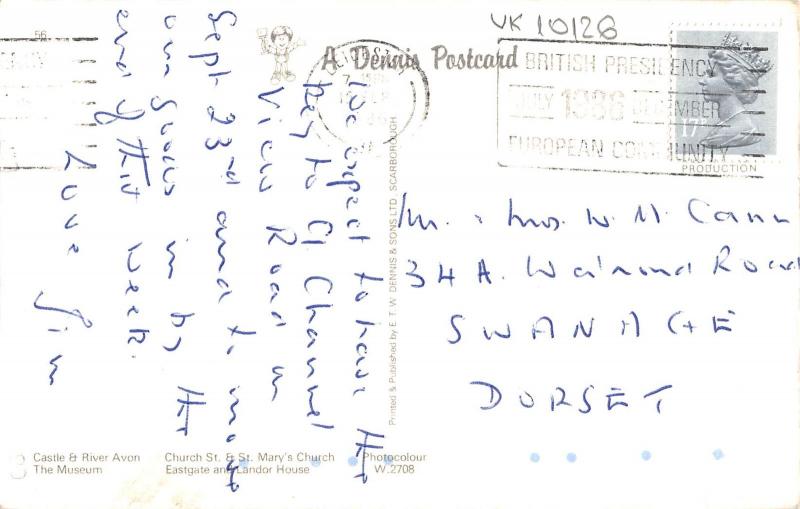 UK 10126
56
A Dennis Postcard
BRITISH PRESIDENCY
JULY 1986 DECEMBER
EUROPEAN COMMUNITY
17P
PRODUCTION
We expect to have the
key to 9 Channel
View Road on
Sept 23rd and to move
our stuff in by the
end of that week.
Love Jim
Printed & Published by E.T.W. DENNIS & SONS LTD., SCARBOROUGH
Mr. & Mrs. W. H. Cann
34 A. Walrond Road
SWANAGE
DORSET
Castle & River Avon
The Museum
Church St. & St. Mary's Church
Eastgate and Landor House
Photocolour
W.2708